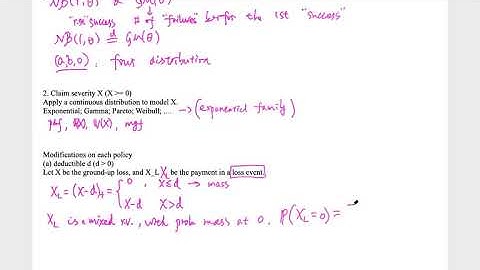 NB(1,θ) & Geo(θ)
"rse" success # of "failures" before the 1st "success"
NB(1,θ) d= Geo(θ)
(a,b,0). four distribution
2. Claim severity X (X >= 0)
Apply a continuous distribution to model X.
Exponential; Gamma; Pareto; Weibull; .... → (exponential family)
pdf, E(X), V(X), mgf
Modifications on each policy
(a) deductible d (d > 0)
Let X be the ground-up loss, and X_L X_L be the payment in a loss event.
X_L = (X-d)_+ = { 0, X≤d → mass
X-d X>d
X_L is a mixed r.v., with prob mass at 0. P(X_L=0) =